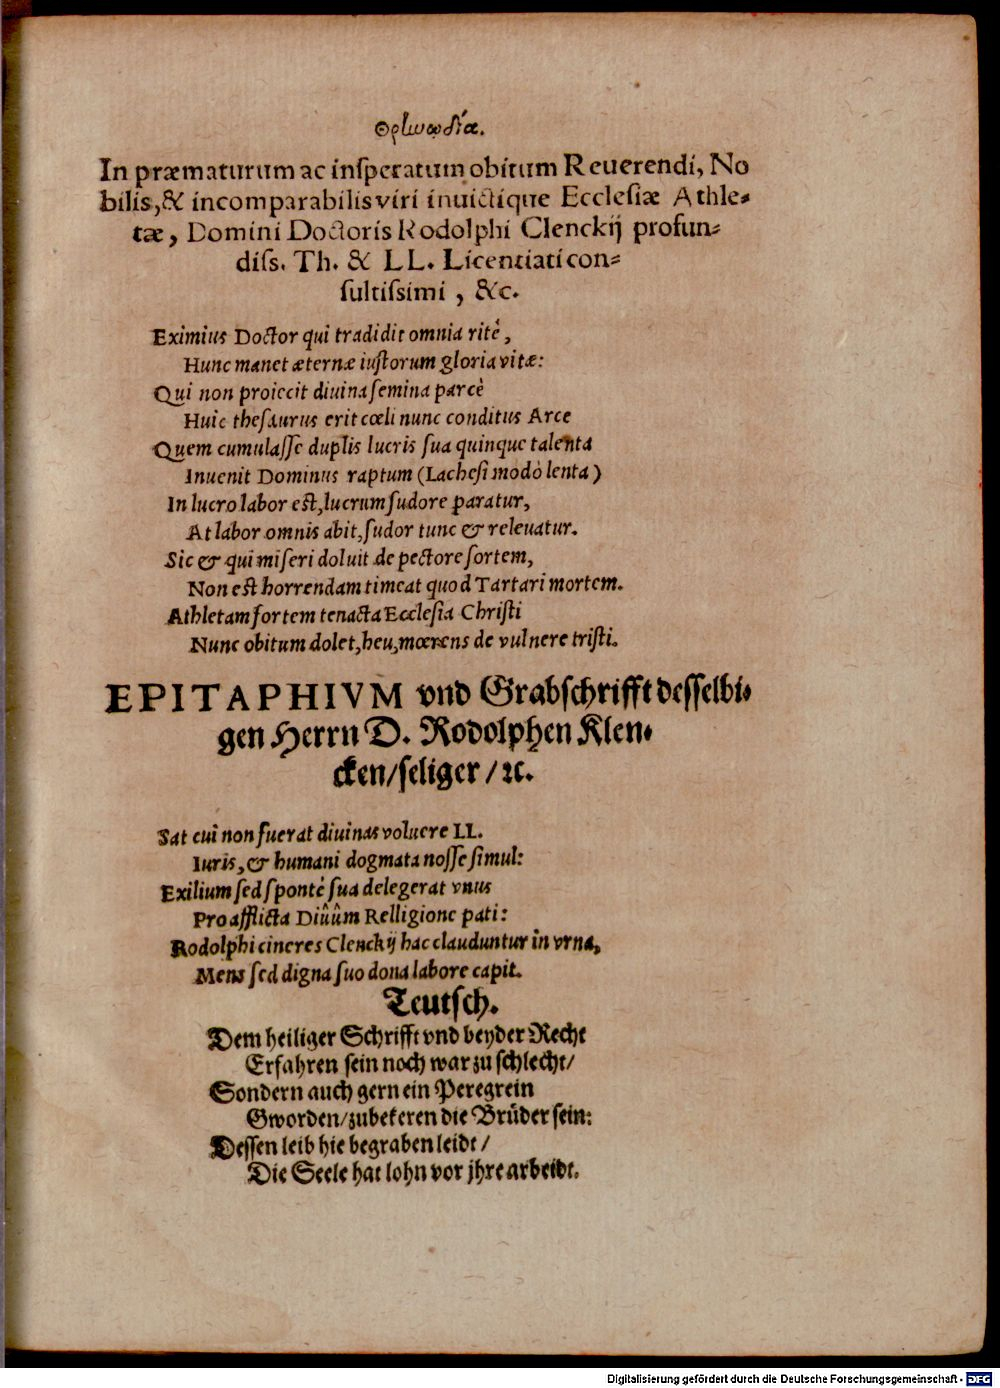 Θρίωῳδία.
In præmaturum ac inſperatum obitum Reuerendi, No
bilis, & incomparabilis viri inuictique Eccleſiæ Athle-
tæ, Domini Doctoris Rodolphi Clenckij profun-
diſs. Th. & LL. Licentiati con-
ſultiſsimi, &c.
Eximius Doctor qui tradidit omnia ritè,
Hunc manet æternæ iuſtorum gloria vitæ:
Qui non proiecit diuina ſemina parcè
Huic theſaurus erit cœli nunc conditus Arce
Quem cumulaſſe duplis lucris ſua quinque talenta
Inuenit Dominus raptum (Lacheſi modò lenta)
In lucro labor eſt, lucrum ſudore paratur,
At labor omnis abit, ſudor tunc & releuatur.
Sic & qui miſeri doluit de pectore ſortem,
Non eſt horrendam timeat quod Tartari mortem.
Athletam fortem tenacta Eccleſia Chriſti
Nunc obitum dolet, heu, mœrens de vulnere triſti.
EPITAPHIVM vnd Grabſchrifft desſelbi-
gen Herrn D. Rodolphen Klen-
cken/ſeliger/ꝛc.
Sat cui non fuerat diuinas voluere LL.
Iuris, & humani dogmata noſſe ſimul:
Exilium ſed ſpontè ſua delegerat vnus
Pro afflicta Diûûm Relligione pati:
Rodolphi cineres Clenckij hac clauduntur in vrna,
Mens ſed digna ſuo dona labore capit.
Teutſch.
Dem heiliger Schrifft vnd beyder Recht
Erfahren ſein noch war zu ſchlecht/
Sondern auch gern ein Peregrein
Gworden/zubekeren die Brüder ſein:
Deſſen leib hie begraben leidt/
Die Seele hat lohn vor jhre arbeidt.
Digitalisierung gefördert durch die Deutsche Forschungsgemeinschaft - DFG